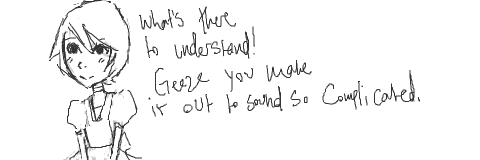 What's there
to understand!
Geeze you make
it out to sound so complicated.